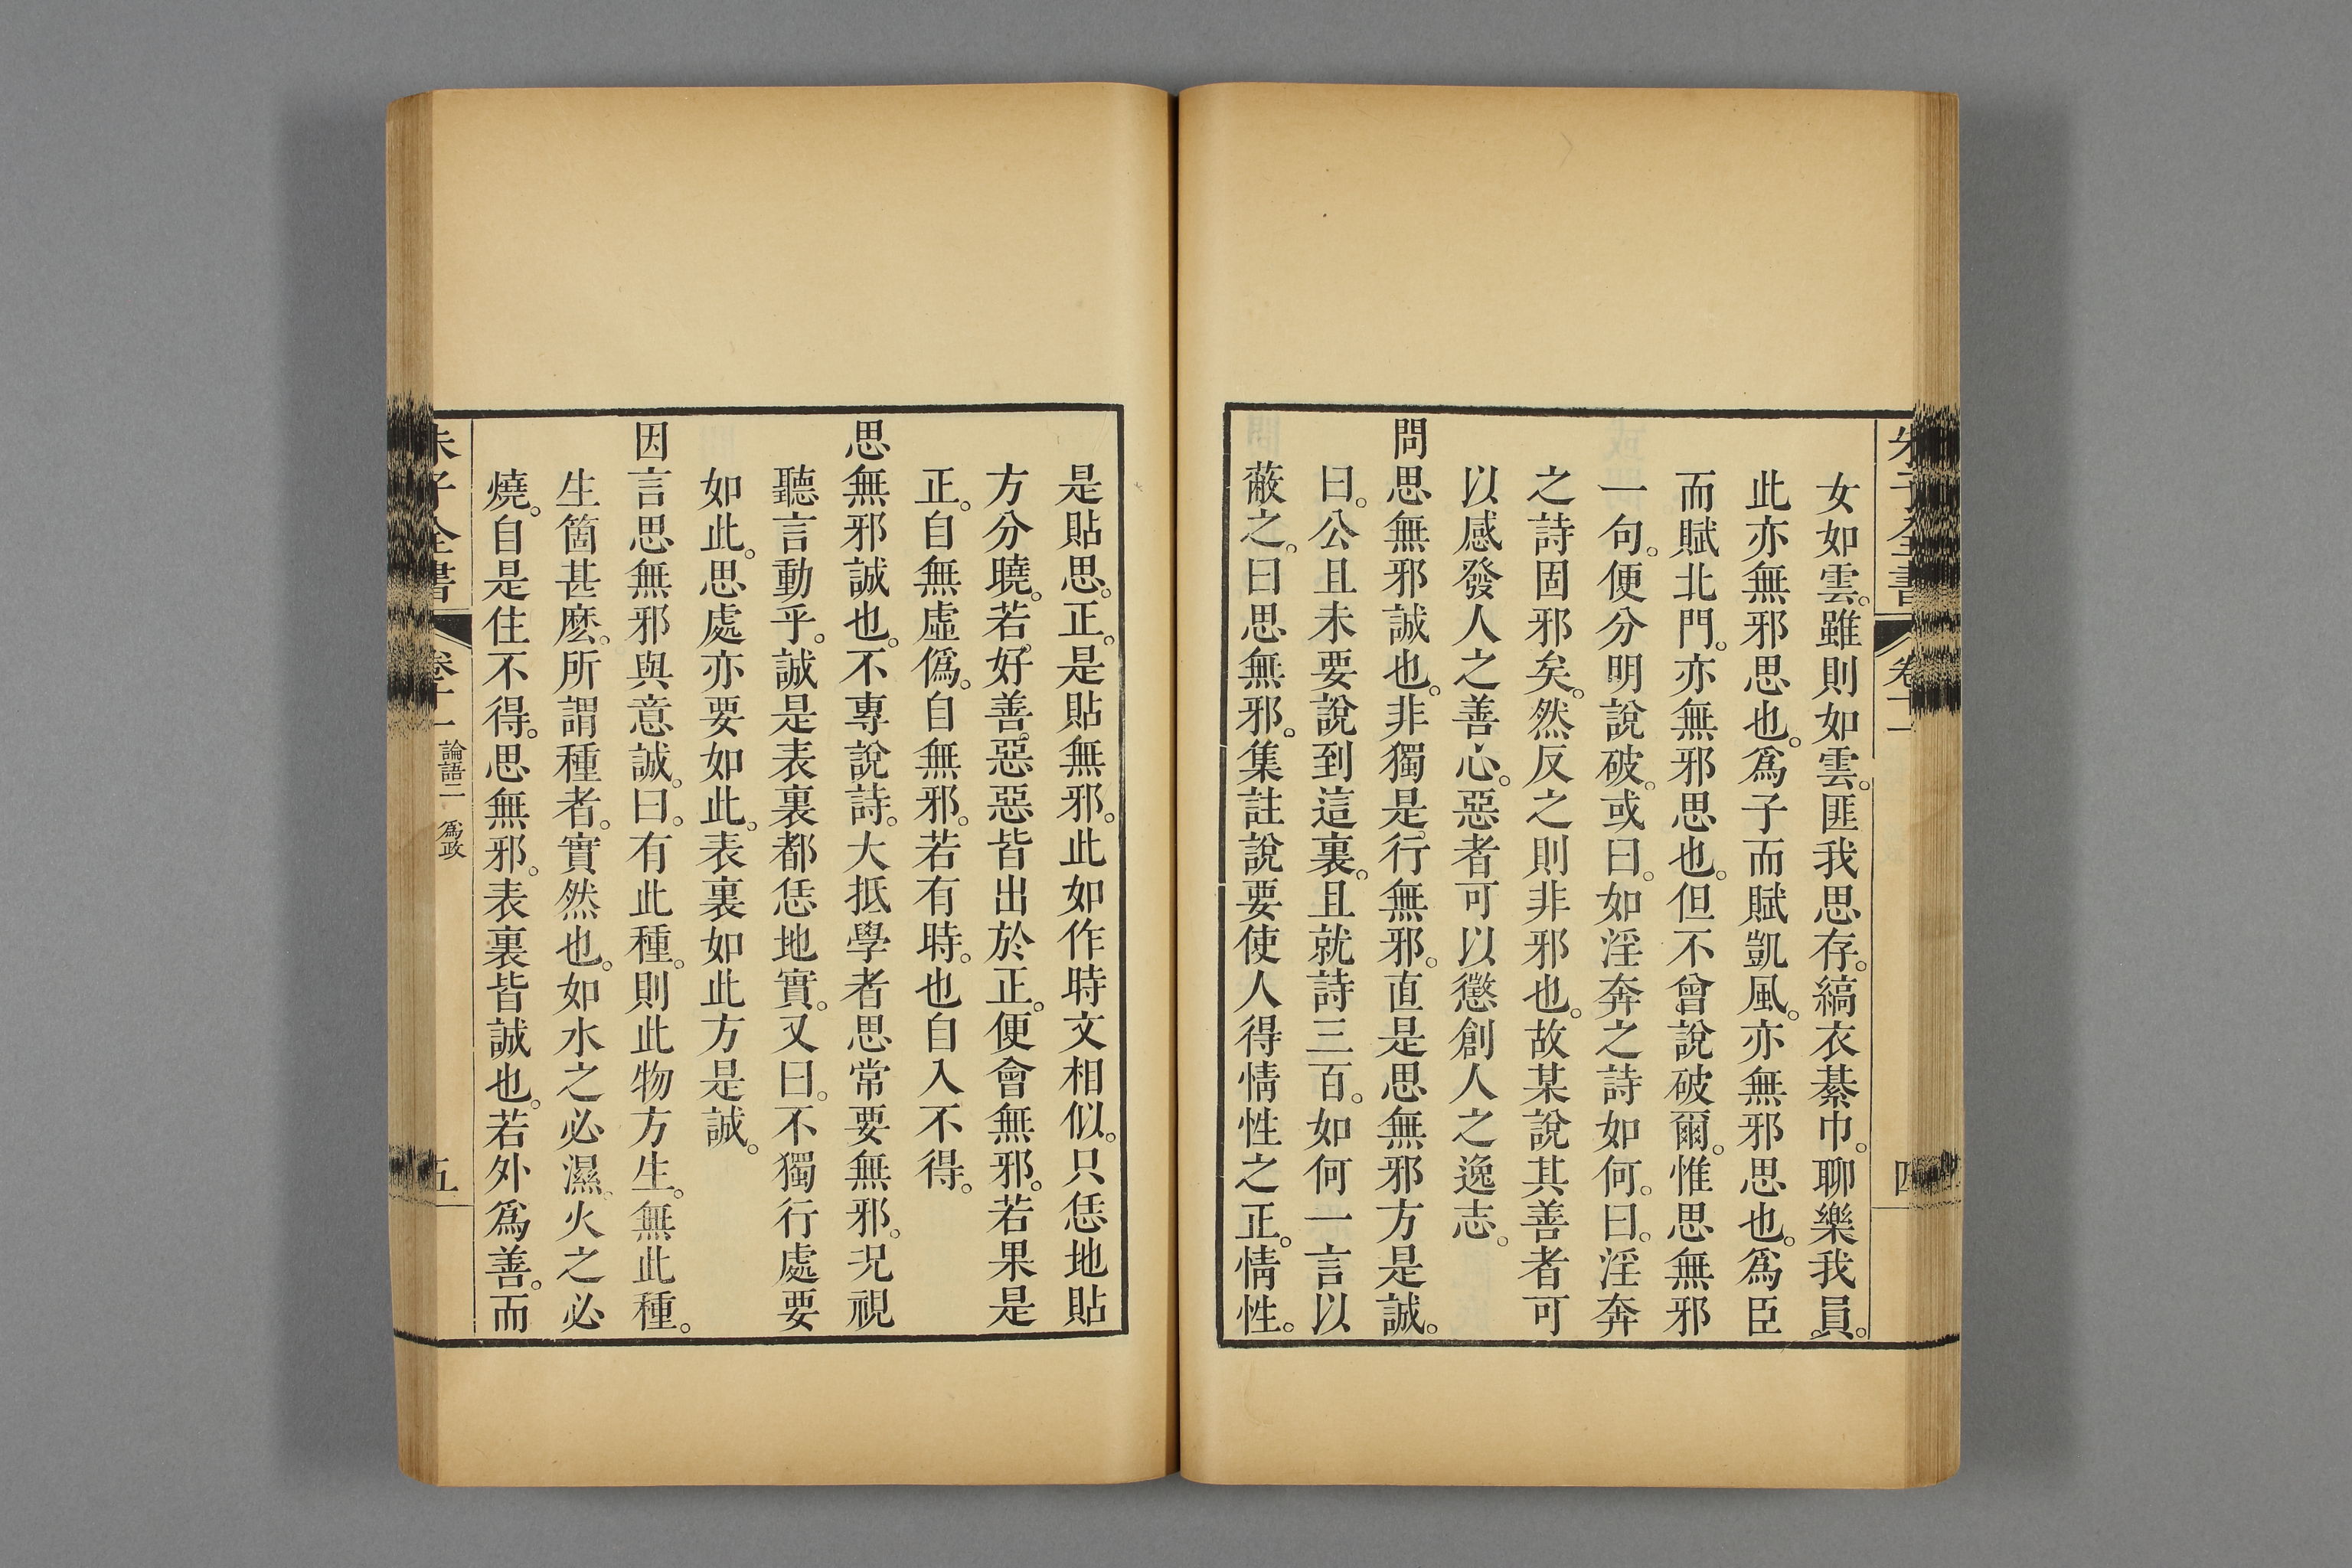 朱子全書
卷十一
四
女如雲。雖則如雲。匪我思存。縞衣綦巾。聊樂我員。
此亦無邪思也。爲子而賦凱風。亦無邪思也。爲臣
而賦北門。亦無邪思也。但不曾說破爾。惟思無邪
一句。便分明說破。或曰。如淫奔之詩如何。曰。淫奔
之詩固邪矣。然反之則非邪也。故某說其善者可
以感發人之善心。惡者可以懲創人之逸志。
問思無邪誠也。非獨是行無邪。直是思無邪方是誠。
曰。公且未要說到這裏。且就詩三百。如何一言以
蔽之。曰思無邪。集註說要使人得情性之正。情性。
是貼思。正。是貼無邪。此如作時文相似。只恁地貼
方分曉。若好善惡惡皆出於正。便會無邪。若果是
正。自無虛僞。自無邪。若有時。也自入不得。
思無邪誠也。不專說詩。大抵學者思常要無邪。况視
聽言動乎。誠是表裏都恁地實。又曰。不獨行處要
如此。思處亦要如此。表裏如此方是誠。
因言思無邪與意誠。曰。有此種。則此物方生。無此種。
生箇甚麽。所謂種者。實然也。如水之必濕。火之必
燒。自是住不得。思無邪。表裏皆誠也。若外爲善。而
朱子全書
卷十一
論語二 爲政
五